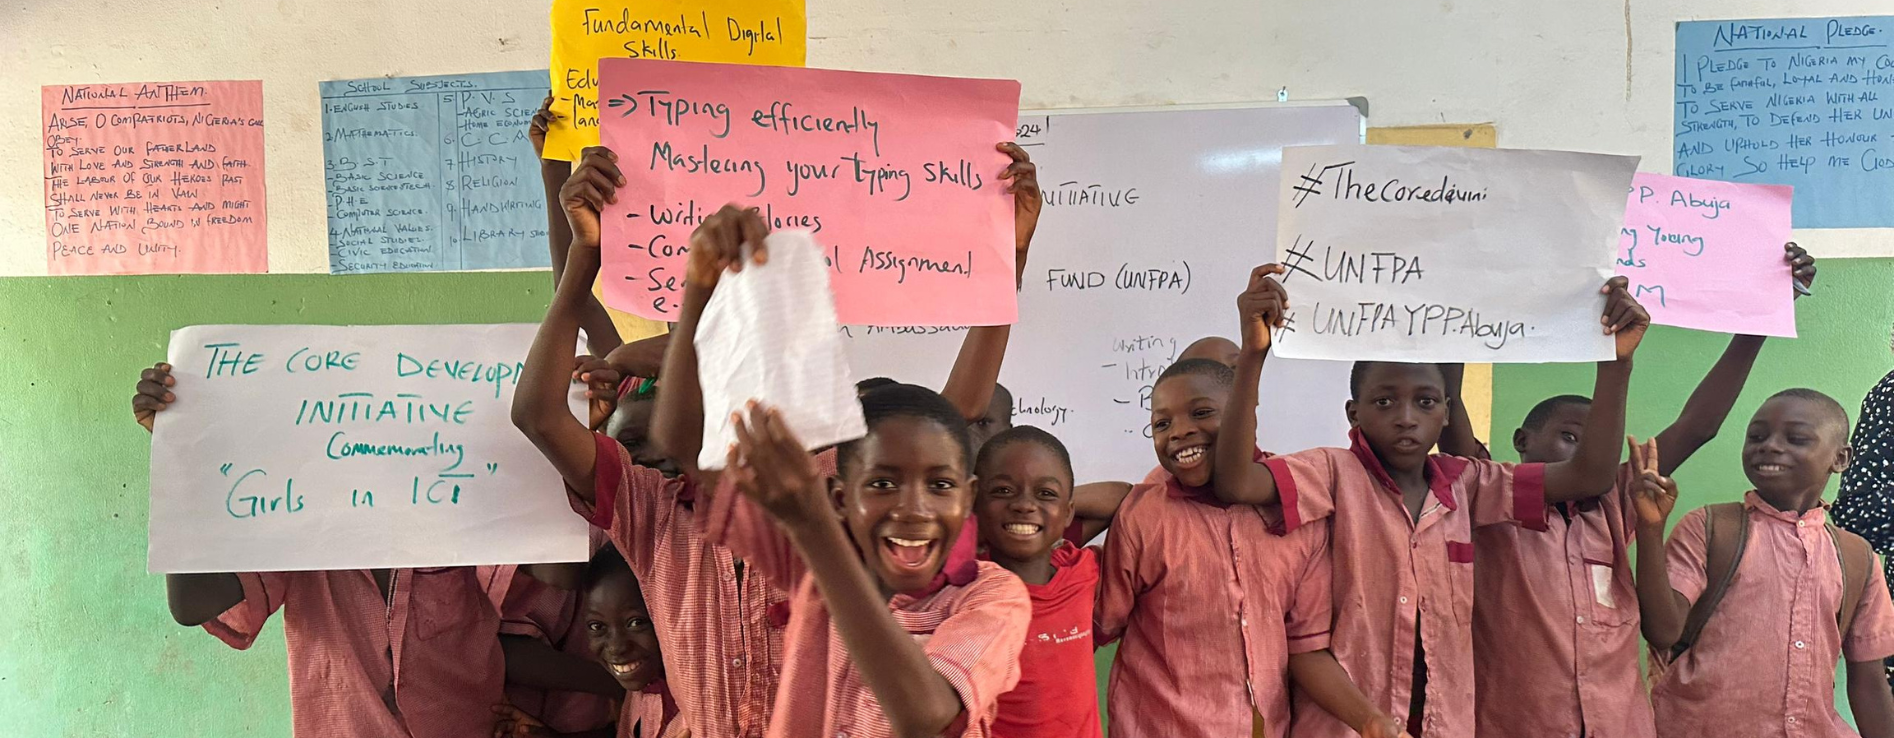 NATIONAL ANTHEM.
ARISE, O COMPATRIOTS, NIGERIA'S CALL
OBEY.
TO SERVE OUR FATHERLAND
WITH LOVE AND STRENGTH AND FAITH
THE LABOUR OF OUR HEROES PAST
SHALL NEVER BE IN VAIN
TO SERVE WITH HEARTS AND MIGHT
ONE NATION BOUND IN FREEDOM
PEACE AND UNITY.
SCHOOL SUBJECTS.
1. ENGLISH STUDIES
2. MATHEMATICS.
3. B.S.T
- BASIC SCIENCE
- P.H.E
- COMPUTER SCIENCE.
4. NATIONAL VALUES.
- SOCIAL STUDIES.
- CIVIC EDUCATION.
- SECURITY EDUCATION
5. P.V.S
- AGRIC SCIEN
- HOME ECONOM
6. C.C.A
7. HISTORY
8. RELIGION
9. HANDWRITING
10. LIBRARY
Fundamental Digital
Skills.
Edu
=> Typing efficiently
Mastering your typing skills
- Writi
- Com Assignment
THE CORE DEVELOPM
INITIATIVE
Commemorating
"Girls in ICT"
2024
INITIATIVE
FUND (UNFPA)
writing
#TheCoredevini
#UNFPA
# UNFPAYPP.Abuja.
PP. Abuja
ng Young
M
NATIONAL PLEDGE.
I PLEDGE TO NIGERIA MY CO
TO BE FAITHFUL, LOYAL AND HON
TO SERVE NIGERIA WITH ALL
STRENGTH, TO DEFEND HER UN
AND UPHOLD HER HONOUR
GLORY SO HELP ME GOD